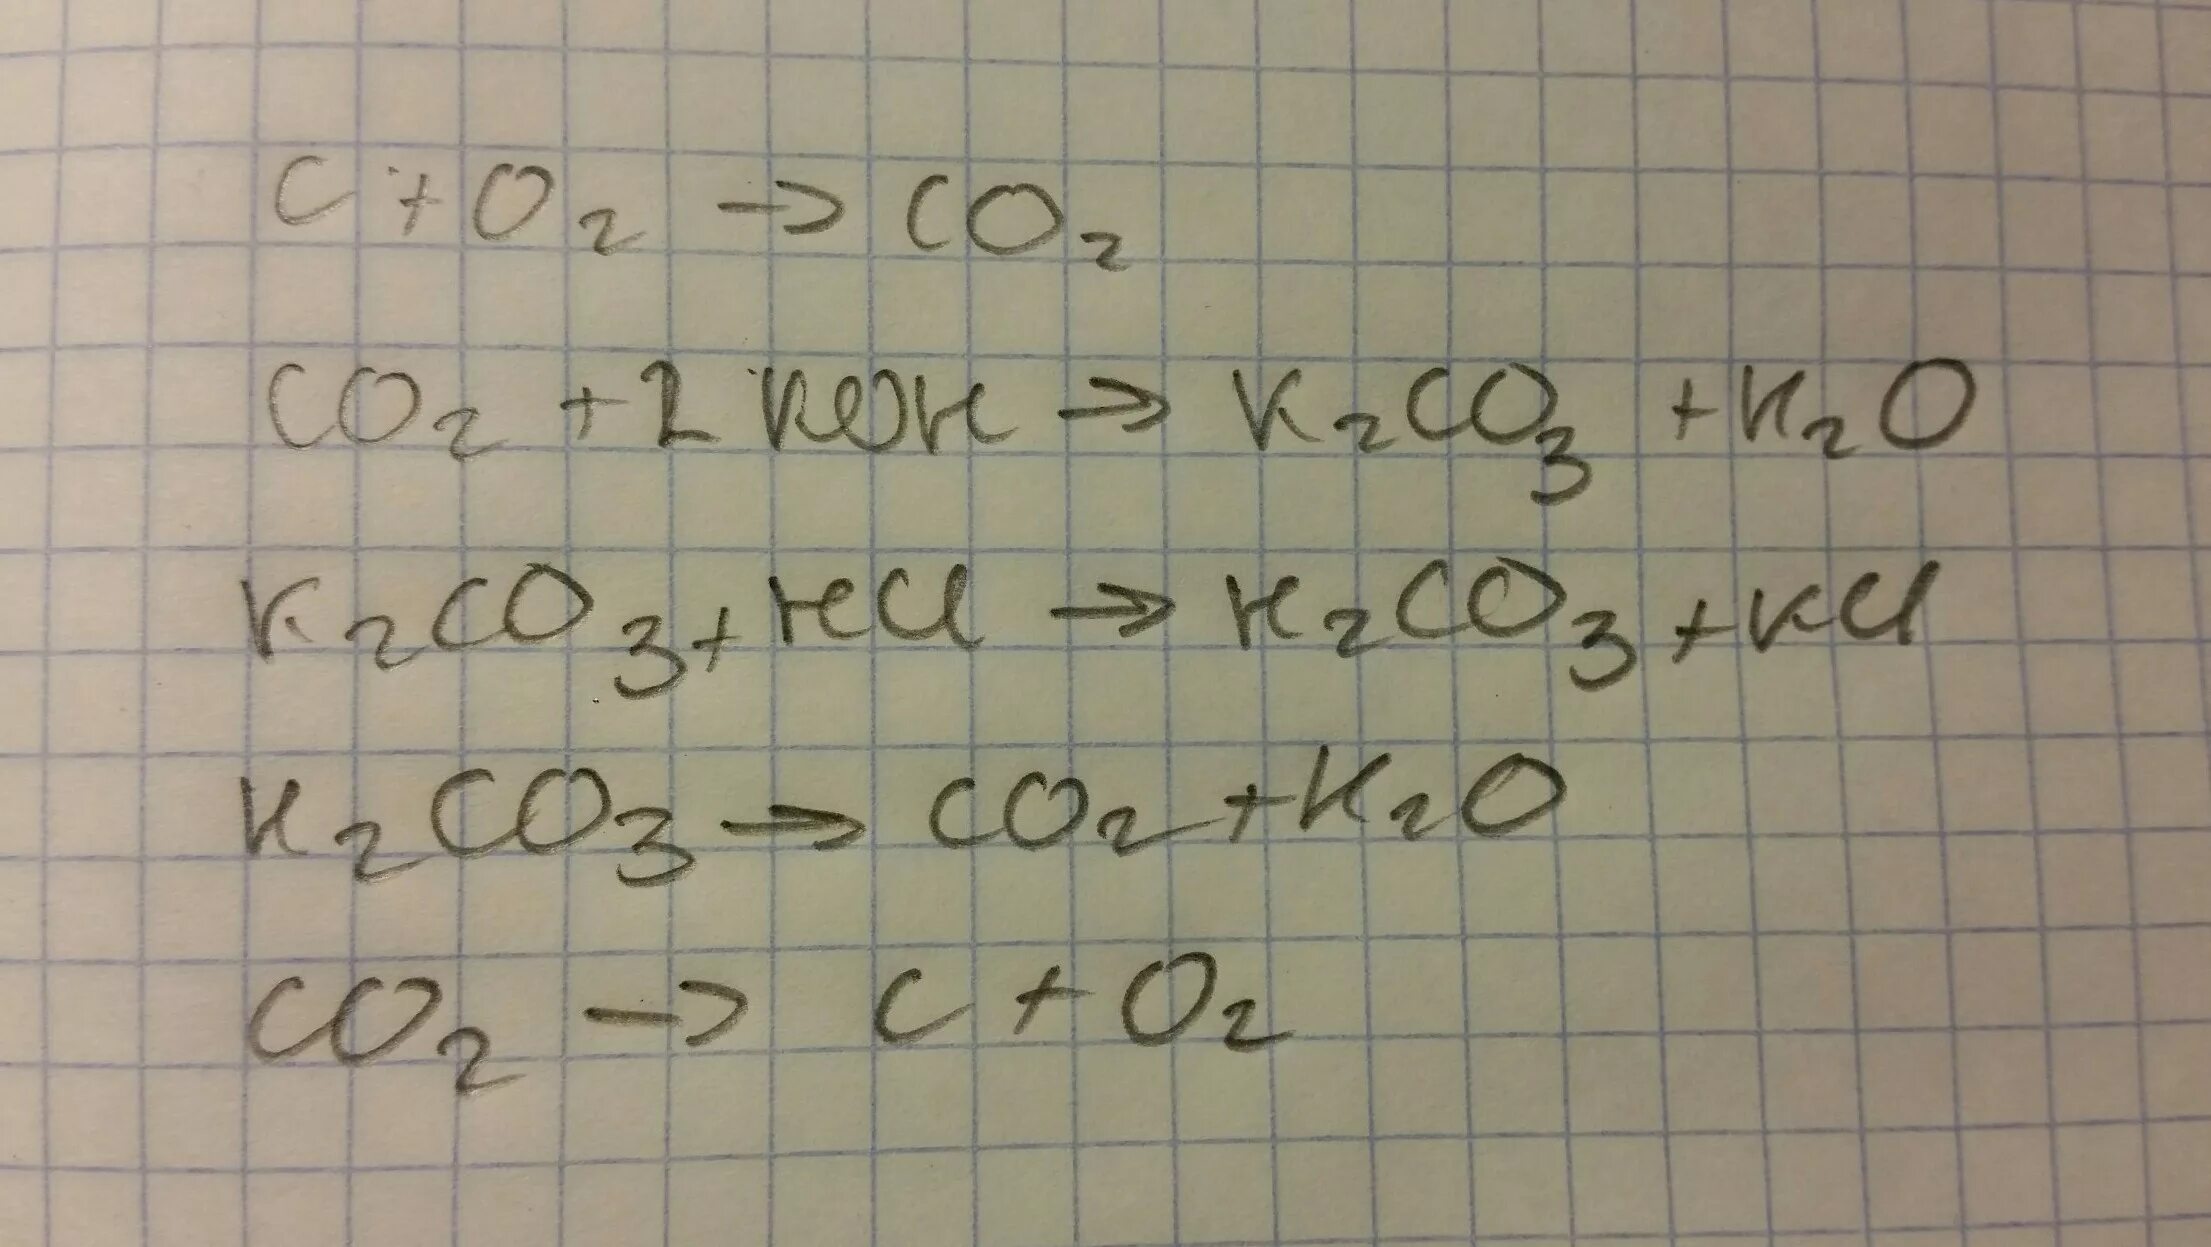 C + O₂ → CO₂
CO₂ + 2 KOH → K₂CO₃ + H₂O
K₂CO₃ + HCl → H₂CO₃ + KCl
H₂CO₃ → CO₂ + H₂O
CO₂ → C + O₂